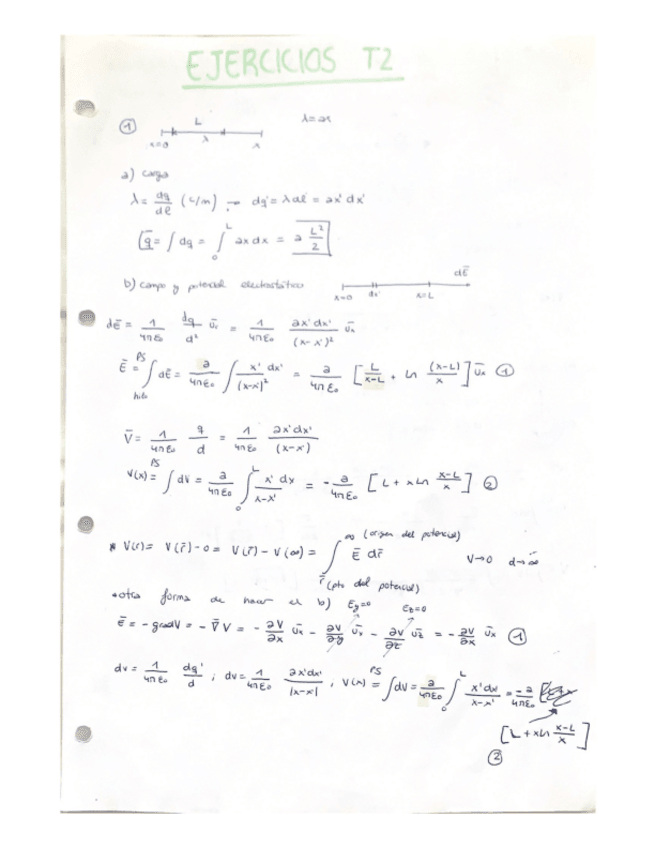 EJERCICIOS T2
① L λ = ax
x=0 λ x
a) carga
λ = dq/dl (C/m) → dq' = λ dl' = ax' dx'
q = ∫ dq = ∫₀ᴸ ax dx = a L²/2
b) campo y potencial electrostático dĒ
x=0 dx' x=L
dĒ = 1/4πε₀ dq/d² ūᵣ = 1/4πε₀ ax'dx'/(x-x')² ūₓ
Ē = ∫ dĒ = a/4πε₀ ∫ x' dx'/(x-x')² = a/4πε₀ [L/x-L + ln (x-L)/x] ūₓ ①
PS
hilo
V̄ = 1/4πε₀ q/d = 1/4πε₀ ax'dx'/(x-x')
V(x) = ∫ dV = a/4πε₀ ∫₀ᴸ x' dx/x-x' = - a/4πε₀ [L + x ln x-L/x] ②
PS
* V(r) = V(r̄) - 0 = V(r̄) - V(∞) = ∫ Ē dr̄ V→0 d→∞
∞ (origen del potencial)
r̄ (pto del potencial)
• otra forma de hacer el b) Ey=0 Ez=0
Ē = - gradV = - ∇̄V = - ∂V/∂x ūₓ - ∂V/∂y ūₓ - ∂V/∂z ūz = - ∂V/∂x ūₓ ①
dv = 1/4πε₀ dq'/d ; dv = 1/4πε₀ ax'dx'/|x-x'| ; V(x) = ∫ dV = a/4πε₀ ∫₀ᴸ x'dx/x-x' = -a/4πε₀
PS
[L + x ln x-L/x]
②